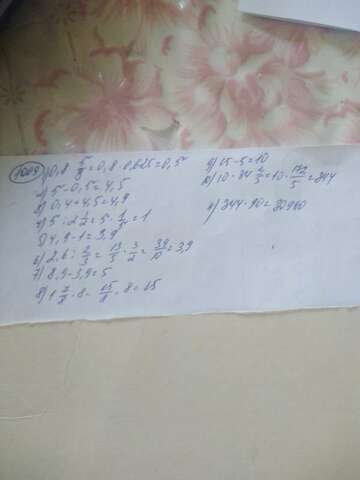 1009
1) 0,8 · 5/8 = 0,8 · 0,625 = 0,5
2) 5 - 0,5 = 4,5
3) 0,4 + 4,5 = 4,9
4) 5 : 2 1/2 = 5 ·
= 1
5) 4,9 - 1 = 3,9
6) 2,6 : 2/3 = 13/5 · 3/2 = 39/10 = 3,9
7) 8,9 - 3,9 = 5
8) 1 7/8 · 8 = 15/8 · 8 = 15
9) 15 - 5 = 10
10) 10 · 34 2/5 = 10 · 172/5 = 344
344 · 90 = 30960